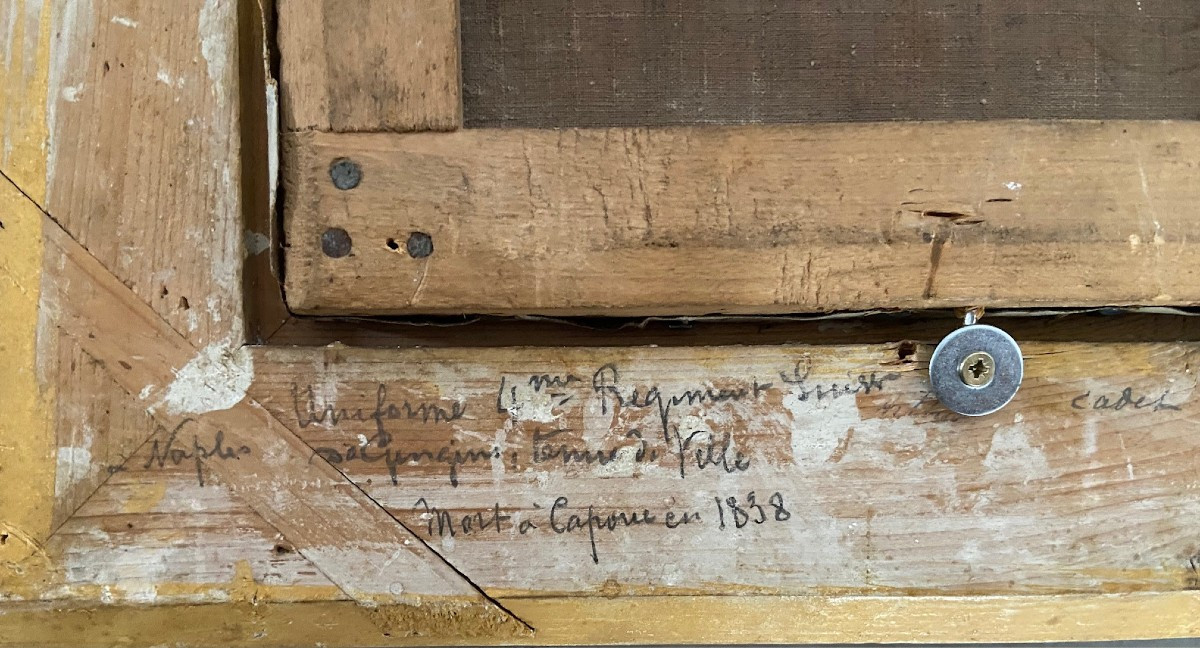 Uniforme 4me Regiment Suisse cadet
Naples tenue de Ville
Mort à Capoue en 1838